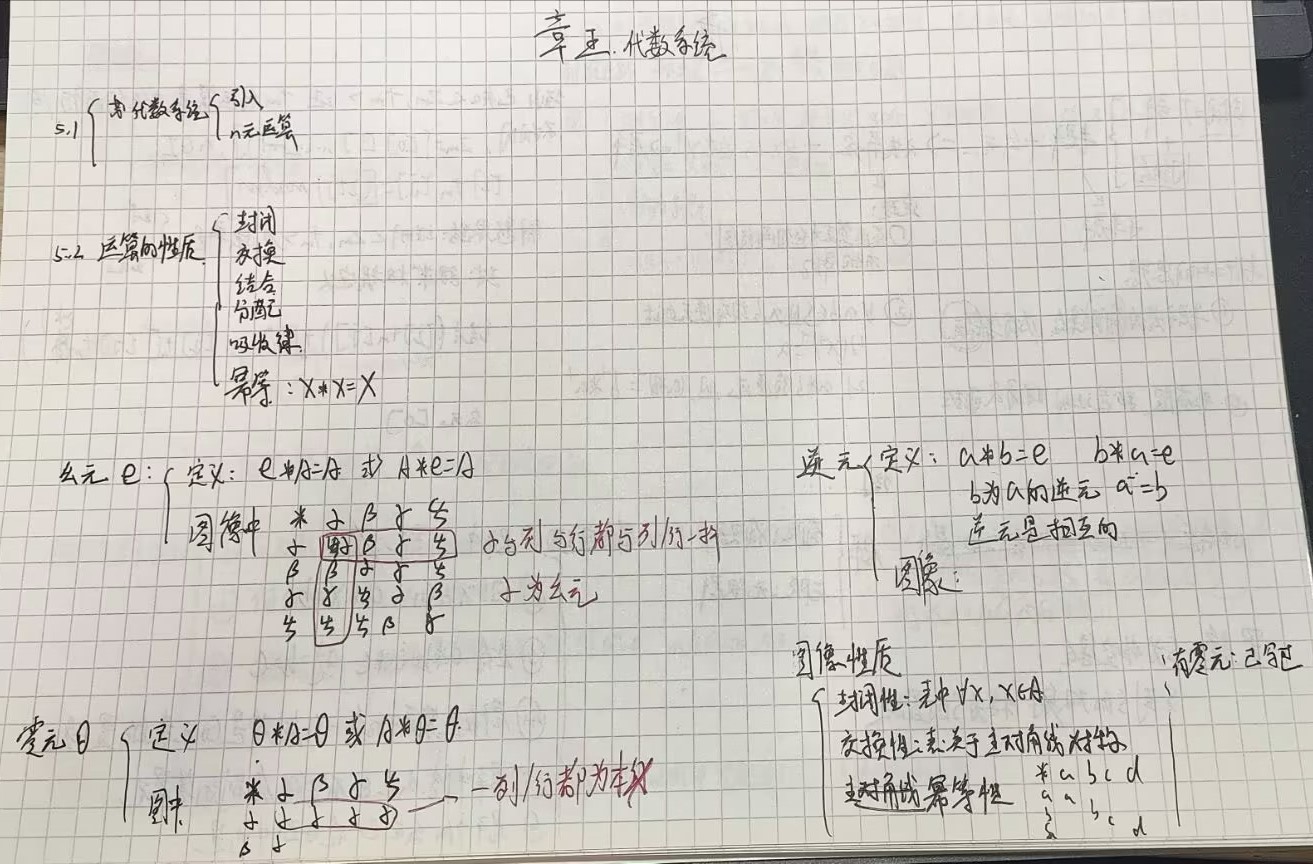 章五. 代数系统
5.1 代数系统 引入
n元运算
5.2 运算的性质
封闭
交换
结合
分配
吸收律
幂等：x*x=x
幺元 e： 定义： e*A=A 或 A*e=A
图像中 * α β γ
α β γ
β β α γ
γ γ α β
β γ
α 列与行都与列/行一样
α为幺元
零元 θ 定义 θ*A=θ 或 A*θ=θ.
图中 * α β γ
α α α α α
β α
一列/行都为本
逆元 定义： a*b=e b*a=e
b为a的逆元 a⁻¹=b
逆元是相互的
图象：
图像性质
封闭性：表中∀x，x∈A
交换性：表关于主对角线对称
主对角线幂等性
* a b c d
a a
b b
c
d
有零元：已写过